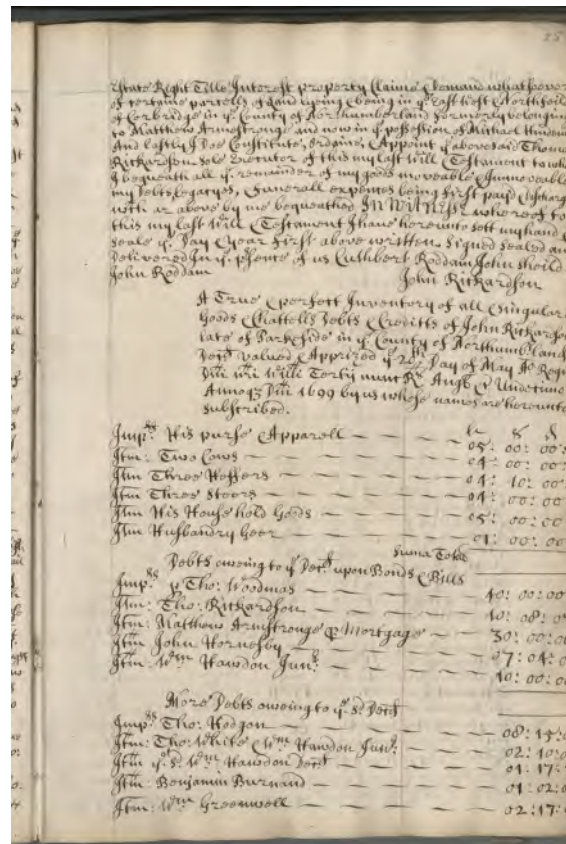 25
Estate Right Title Interest property Claime & demand whatsoever
of certaine parcells of Land lyeing & being in ye East & West Northfeild
of Corbridge in ye County of Northumberland formerly belonging
to Matthew Armestronge and now in ye possession of Michael
And Lastly I Doe Constitute, ordaine, & Appoint ye abovesaid Thom
Richardson sole Executor of this my last Will & Testament to who
I bequeath all ye remainder of my goods moveable & Immoveable
my Debts, Legacyes, & Funerall expences being first payd & discharg
with as above by me bequeathed In Witness whereof to
this my last Will & Testament I have hereunto sett my hand &
seale ye Day & year first above written. Signed Sealed an
Delivered in ye p'sence of us Cuthbert Roddam John Sheild
John Roddam John Richardson
A True & perfect Inventory of all & Singular
Goods & Chattells Debts & Creditts of John Richardso
late of Parkeside in ye County of Northumb'land
Decd valued & Apprized ye 26th Day of May Ao Regn
Dni nri Willi Tertij nunc Rs Angl &c Undecimo
Annoq Dni 1699 by us whose names are hereunto
Subscribed.
li s d
Imprs His purse & Apparell — 05: 00: 00
Itm: Two Cows — 04: 00: 00
Itm Three Heffers — 04: 10: 00
Itm Three Steers — 04: 00: 00
Itm His Household Goods — 05: 00: 00
Itm Husbandry Geer — 01: 00: 00
Suma Total
Debts oweing to ye Decd upon Bonds & Bills
Imprs p Tho: Woodmas — 40: 00: 00
Itm: Tho: Richardson — 10: 08: 0
Itm: Matthew Armstronge p Mortgage — 30: 00: 00
Itm John Hornesby — 07: 04: 0
Itm: Wm Hawdon Junr — 40: 00: 00
More Debts oweing to ye sd Decd
Imprs Tho: Hodgon — 08: 15:
Itm: Tho: White & Wm Hawdon Junr: — 02: 10:
Itm ye sd Wm Hawdon Decd — 01: 17:
Itm: Benjamin Burnand — 01: 02:
Itm: Wm Greenwell — 02: 17: